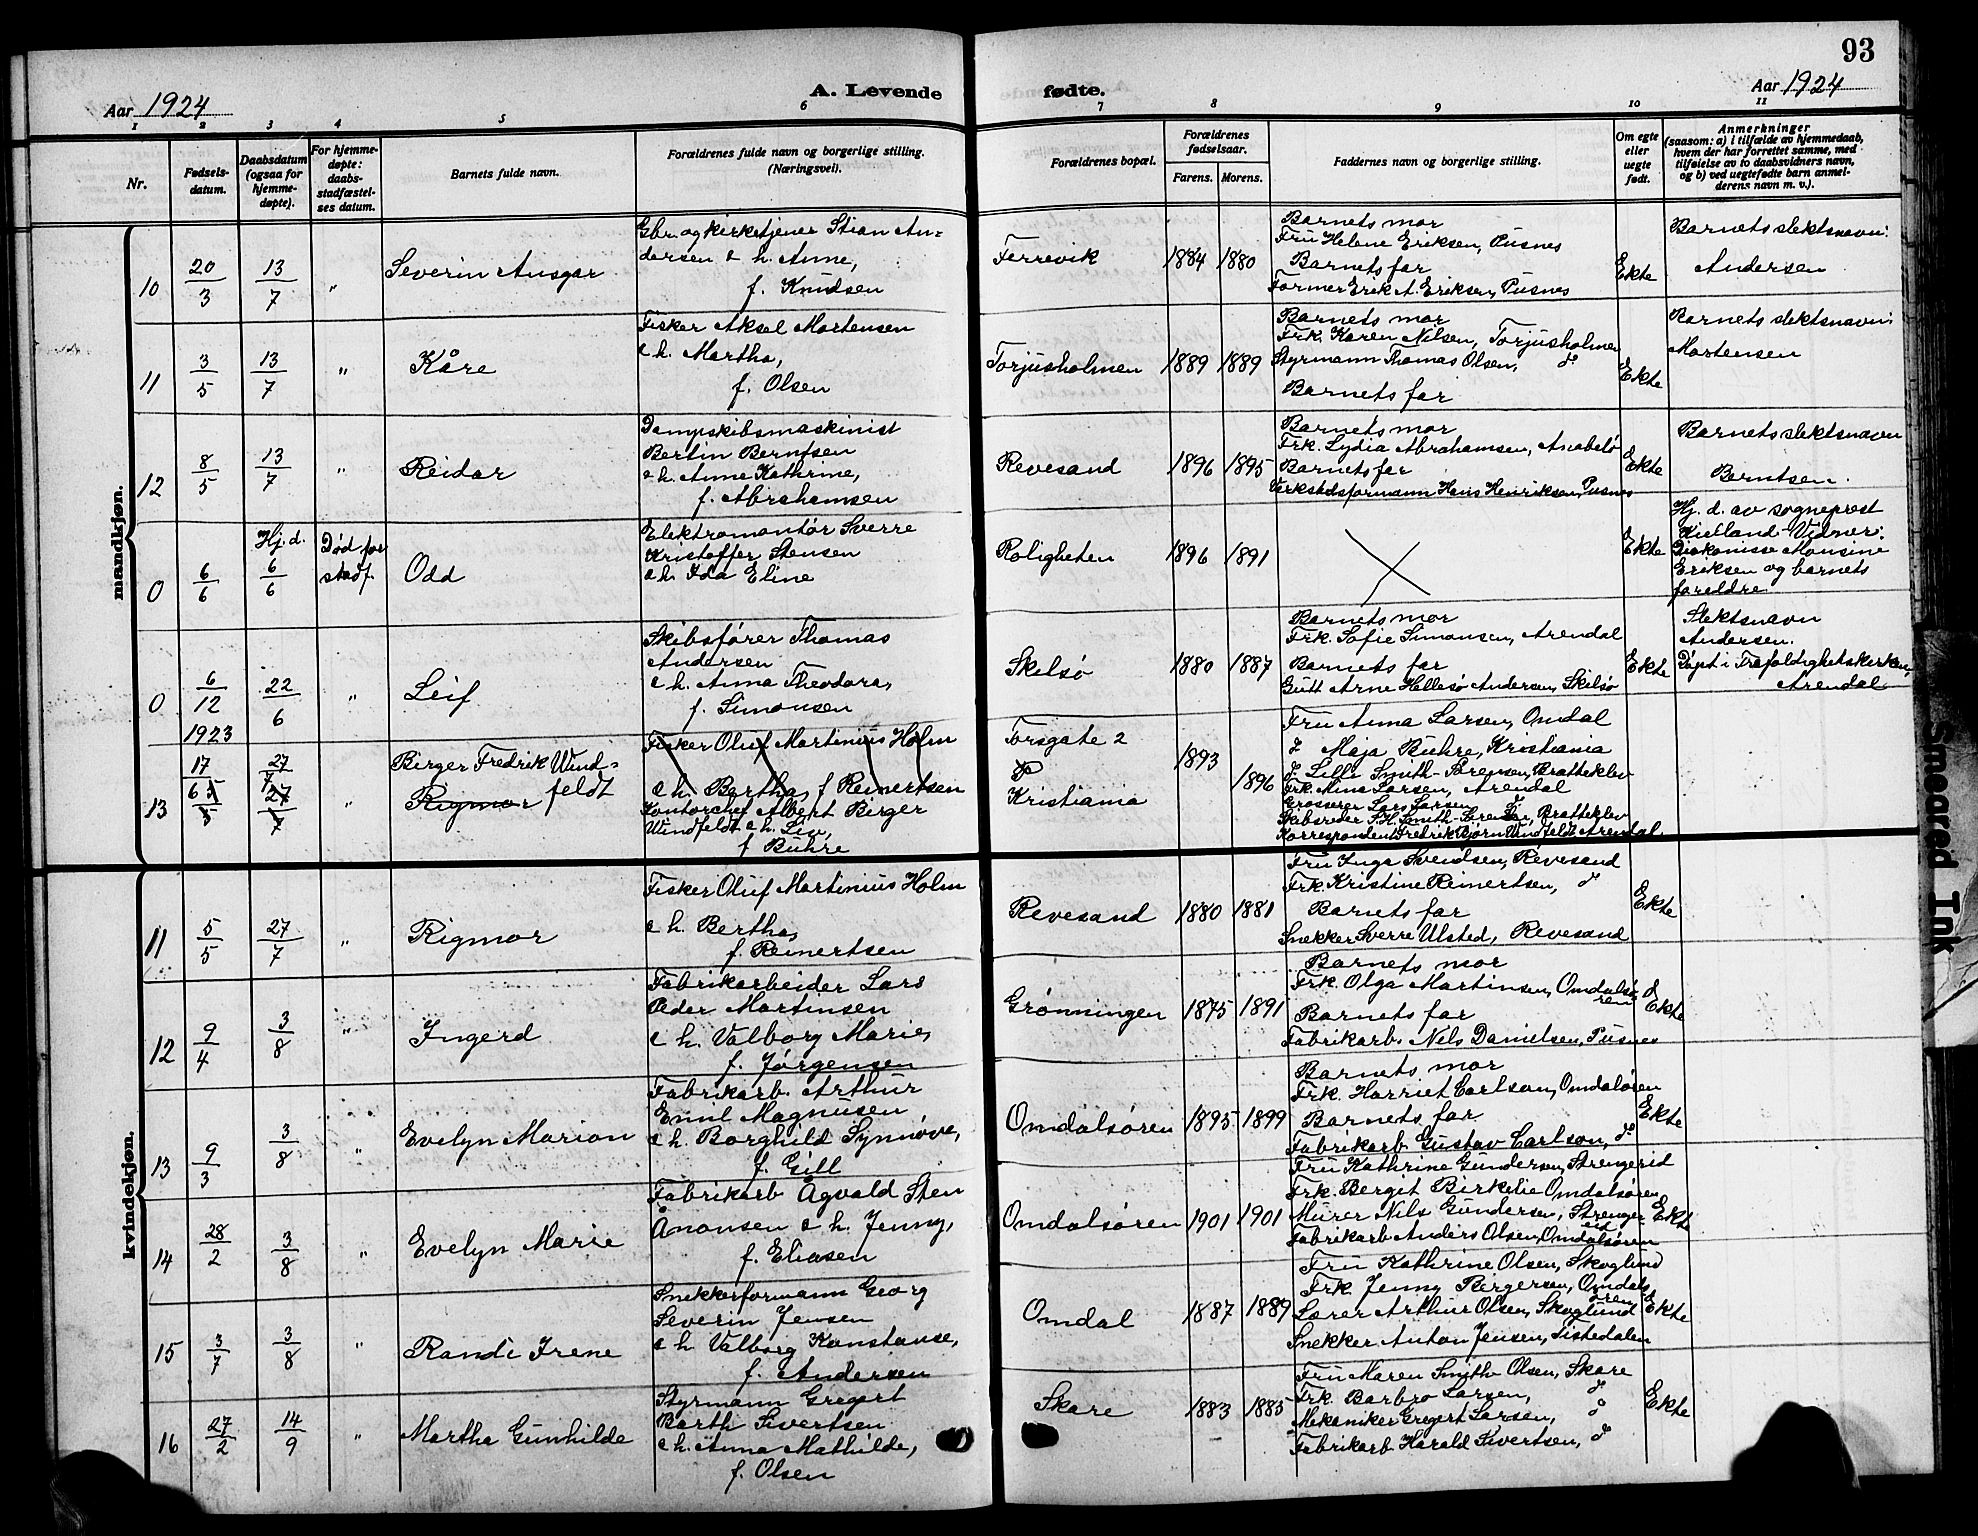 93
Aar 1924
A. Levende
fødte.
Aar 1924
1 2 3 4 5 6 7 8 9 10 11
Nr.
Fødsels-
datum.
Daabsdatum
(ogsaa for
hjemme-
døpte).
For hjemme-
døpte:
daabs-
stadfæstel-
ses datum.
Barnets fulde navn.
Forældrenes fulde navn og borgerlige stilling.
(Næringsvei).
Forældrenes bopæl.
Forældrenes
fødselsaar.
Farens. Morens.
Faddernes navn og borgerlige stilling.
Om egte
eller
uegte
født.
Anmerkninger
(saasom: a) i tilfælde av hjemmedaab,
hvem der har forrettet samme, med
tilføielse av to daabsvidners navn,
og b) ved uegtefødte barn anmel-
derens navn m. v.).
mandkjøn.
10 20/3 13/7 " Severin Ansgar
Gbr. og kirketjener Stian An=
dersen e h. Anne,
f. Knudsen
Ferrevik 1884 1880
Barnets mor
Fru Helene Eriksen, Pusnes
Barnets far
Former Erik A. Eriksen, Pusnes
Ekte
Barnets slektsnavn:
Andersen
11 3/5 13/7 " Kåre
Fisker Aksel Mortensen
e h. Martha,
f. Olsen
Torjusholmen 1889 1889
Barnets mor
Frk. Karen Nilsen, Torjusholmen
Styrmann Thomas Olsen, do
Barnets far
Ekte
Barnets slektsnavn:
Mortensen
12 8/5 13/7 " Reidar
Dampskibsmaskinist
Bertin Berntsen
e h. Anne Kathrine,
f. Abrahamsen
Revesand 1896 1895
Barnets mor
Frk. Lydia Abrahamsen, Anabelø
Barnets far
Verkstedsformann Hans Henriksen, Pusnes
Ekte
Barnets slektsnavn
Berntsen.
0 6/6 Hj. d. 6/6 Død før stadf. Odd
Elektromontør Sverre
Kristoffer Stensen
e h. Ida Eline
Roligheten 1896 1891
Ekte
Hj. d. av sogneprest
Kielland. Vidner:
Diakonisse Monsine
Eriksen og barnets
foreldre.
0 6/12 1923 22/6 " Leif
Skibsfører Thomas
Andersen
e h. Anna Theodora,
f. Simonsen
Skelsø 1880 1887
Barnets mor
Frk. Sofie Simonsen, Arendal
Barnets far
Gutt Arne Hellesø Andersen, Skilsø
Ekte
Slektsnavn
Andersen.
Døpt i Trefoldighetskirken,
Arendal
13 17/6 27/7 " Birger Fredrik Wind=
feldt
Rigmor
Fisker Oluf Martinius Holm
e h. Bertha, f. Reinertsen
Kontorchef Albert Birger
Windfeldt e h. Liv,
f Buhre
Torsgate 2
Kristiania 1893 1896
Fru Anna Larsen, Omdal
Maja Buhre, Kristiania
Lilli Smith-Sørensen, Bratteklev
Frk. Anna Larsen, Arendal
Grosserer Lars Larsen do
Skibsreder S. H. Smith-Sørensen, Bratteklev
Korrespondent Fredrik Bjørn Windfeldt Arendal
kvindekjøn.
11 5/5 27/7 " Rigmor
Fisker Oluf Martinius Holm
e h. Bertha,
f. Reinertsen
Revesand 1880 1881
Fru Inga Svendsen, Revesand
Frk. Kristine Reinertsen, do
Barnets far
Snekker Sverre Ulsted, Revesand
Ekte
12 9/4 3/8 " Ingerd
Fabrikarbeider Lars
Peder Martinsen
e h. Valborg Marie,
f. Jørgensen
Grønningen 1875 1891
Barnets mor
Frk. Olga Martinsen, Omdalsø
ren
Barnets far
Fabrikarb. Nils Danielsen, Pusnes
Ekte
13 9/3 3/8 " Evelyn Marion
Fabrikarb. Arthur
Emil Magnusen
e h. Borghild Synnøve,
f. Gill
Omdalsøren 1895 1899
Barnets mor
Frk. Harriet Carlson, Omdalsøren
Barnets far
Fabrikarb Gustav Carlson, do
Ekte
14 28/2 3/8 " Evelyn Marie
Fabrikarb Ågvald Sten
Ånonsen e h. Jenny,
f. Eliasen
Omdalsøren 1901 1901
Fru Kathrine Gundersen, Strengereid
Frk. Bergit Birkelie Omdalsøren
Murer Nils Gundersen, Strenger
eid
Fabrikarb Anders Olsen, Omdalsøren
Ekte
15 3/7 3/8 " Randi Irene
Snekkerformann Georg
Severin Jensen
e h Valborg Konstanse,
f. Andersen
Omdal 1887 1889
Fru Kathrine Olsen, Skoglund
Frk. Jenny Birgersen, Omdals
øren
Lærer Arthur Olsen, Skoglund
Snekker Anton Jensen, Tistedalen
Ekte
16 27/2 14/9 " Martha Gunhilde
Styrmann Gregert
Barth Sivertsen
e h. Anna Mathilde,
f. Olsen
Skare 1883 1885
Fru Maren Smith Olsen, Skare
Frk. Barbro Larsen, do
Mekaniker Gregert Larsen, do
Fabrikarb Harald Sivertsen, do
Ekte
Smeared Ink